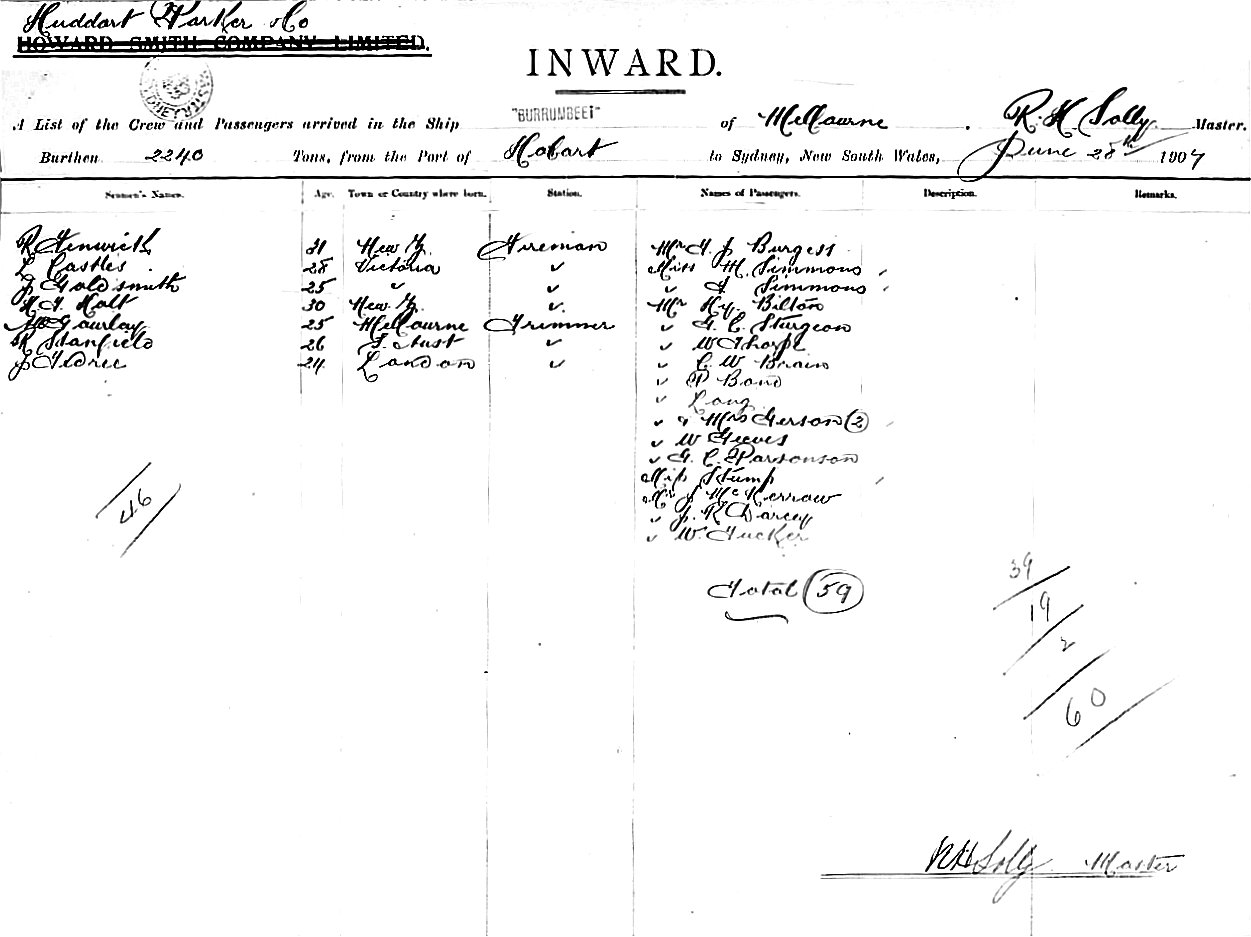 Huddart Parker & Co
HOWARD SMITH COMPANY LIMITED.
INWARD.
A List of the Crew and Passengers arrived in the Ship "BURRUMBEET" of Melbourne . R. H. Solly Master.
Burthen 2240 Tons, from the Port of Hobart to Sydney, New South Wales, June 28th 1907
Seamen's Names. Age. Town or Country where born. Station. Names of Passengers. Description. Remarks.
R Fenwick 31 New Z. Fireman Mr F. J Burgess
L Castles 28 Victoria ✓ Miss M. Simmons
J Goldsmith 25 ✓ ✓ Simmons
Holt 30 New Z. ✓ Mr Hy. Bilton
Gourlay 25 Melbourne Trimmer ✓ G. C. Sturgeon
R Stanfield 26 S. Aust ✓ ✓ W Thorpe
J Fedric 24 London ✓ ✓ C. W. Brain
✓ P Bond
✓ Long
✓ & Mrs Gerson (2)
✓ W Geeves
✓ G. C. Parsonson
Miss Stump
Mr J McKerrow
✓ J. R Darcy
✓ W. Tucker
46
Total (59)
39
19
2
60
RH Solly Master